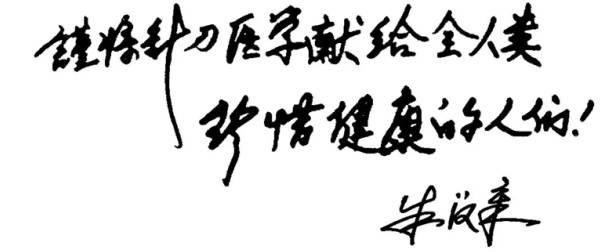 謹将针刀医学献给全人类
珍惜健康的人们!
朱汉章